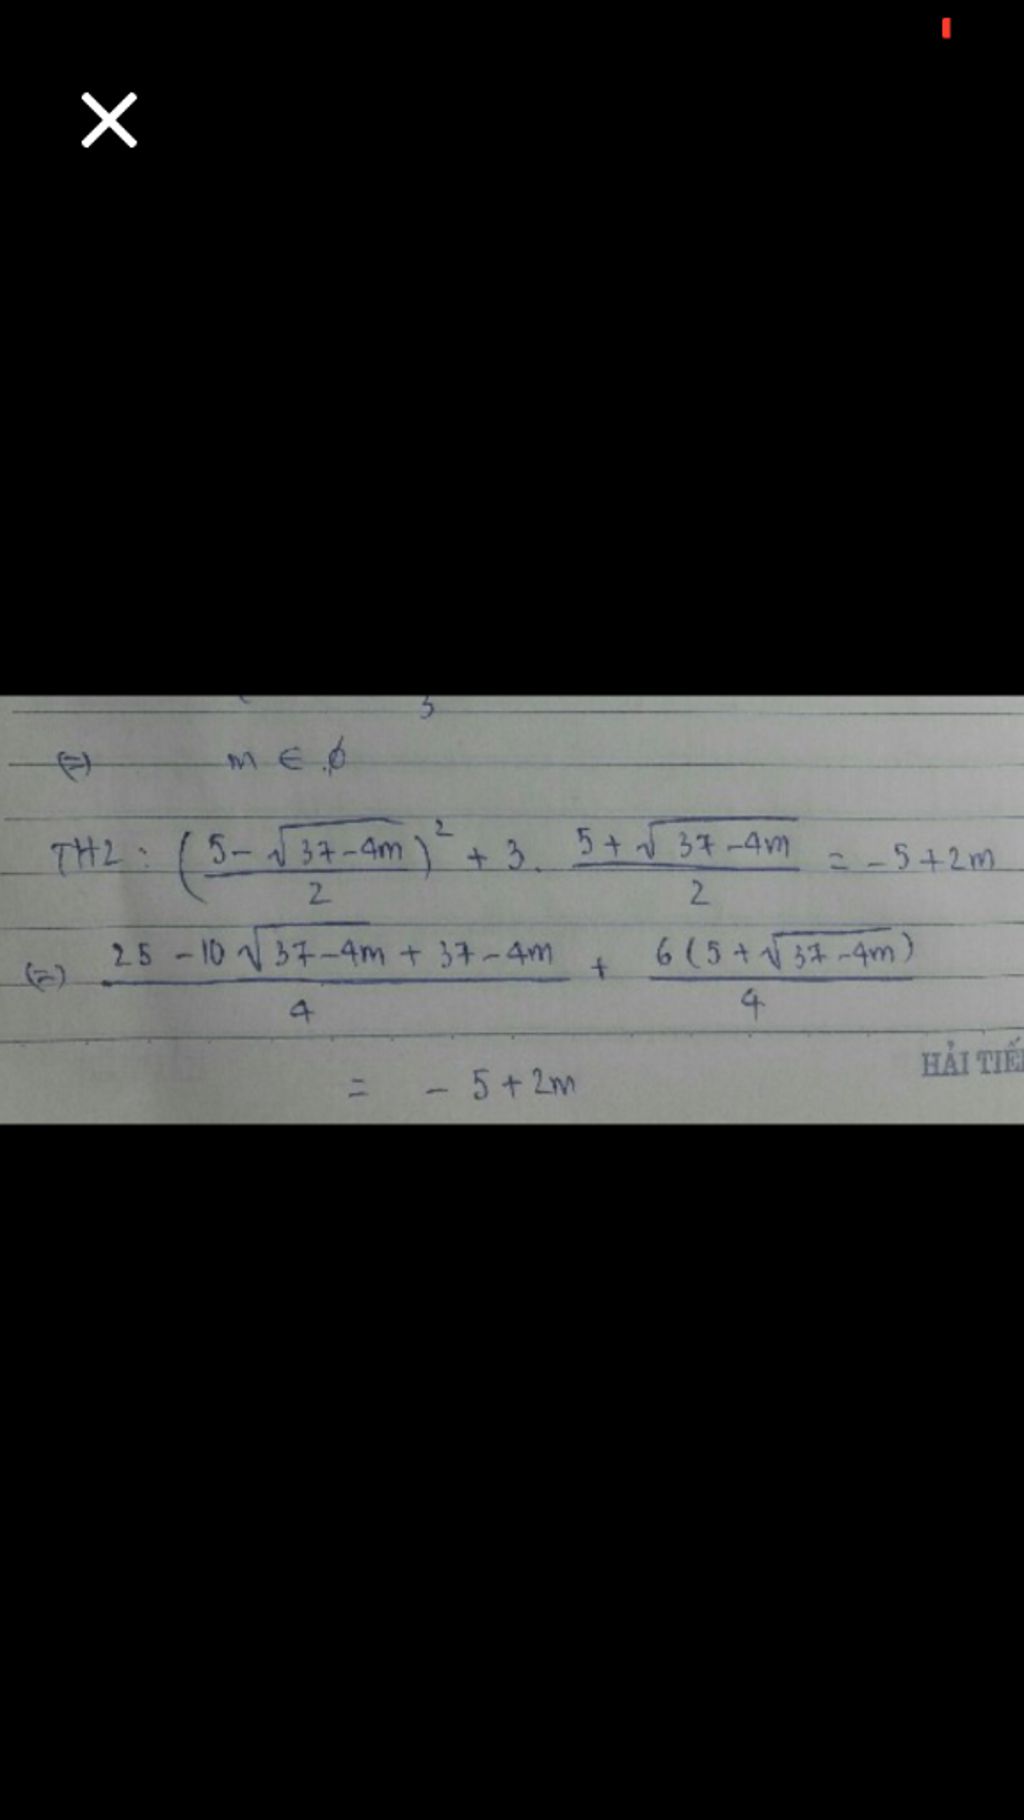 (=) m ∈ ∅
TH2: ((5 - √(37-4m))/2)² + 3. (5 + √(37-4m))/2 = -5 + 2m
(=) (25 - 10√(37-4m) + 37 - 4m)/4 + 6(5 + √(37-4m))/4
= - 5 + 2m
HẢI TIẾ